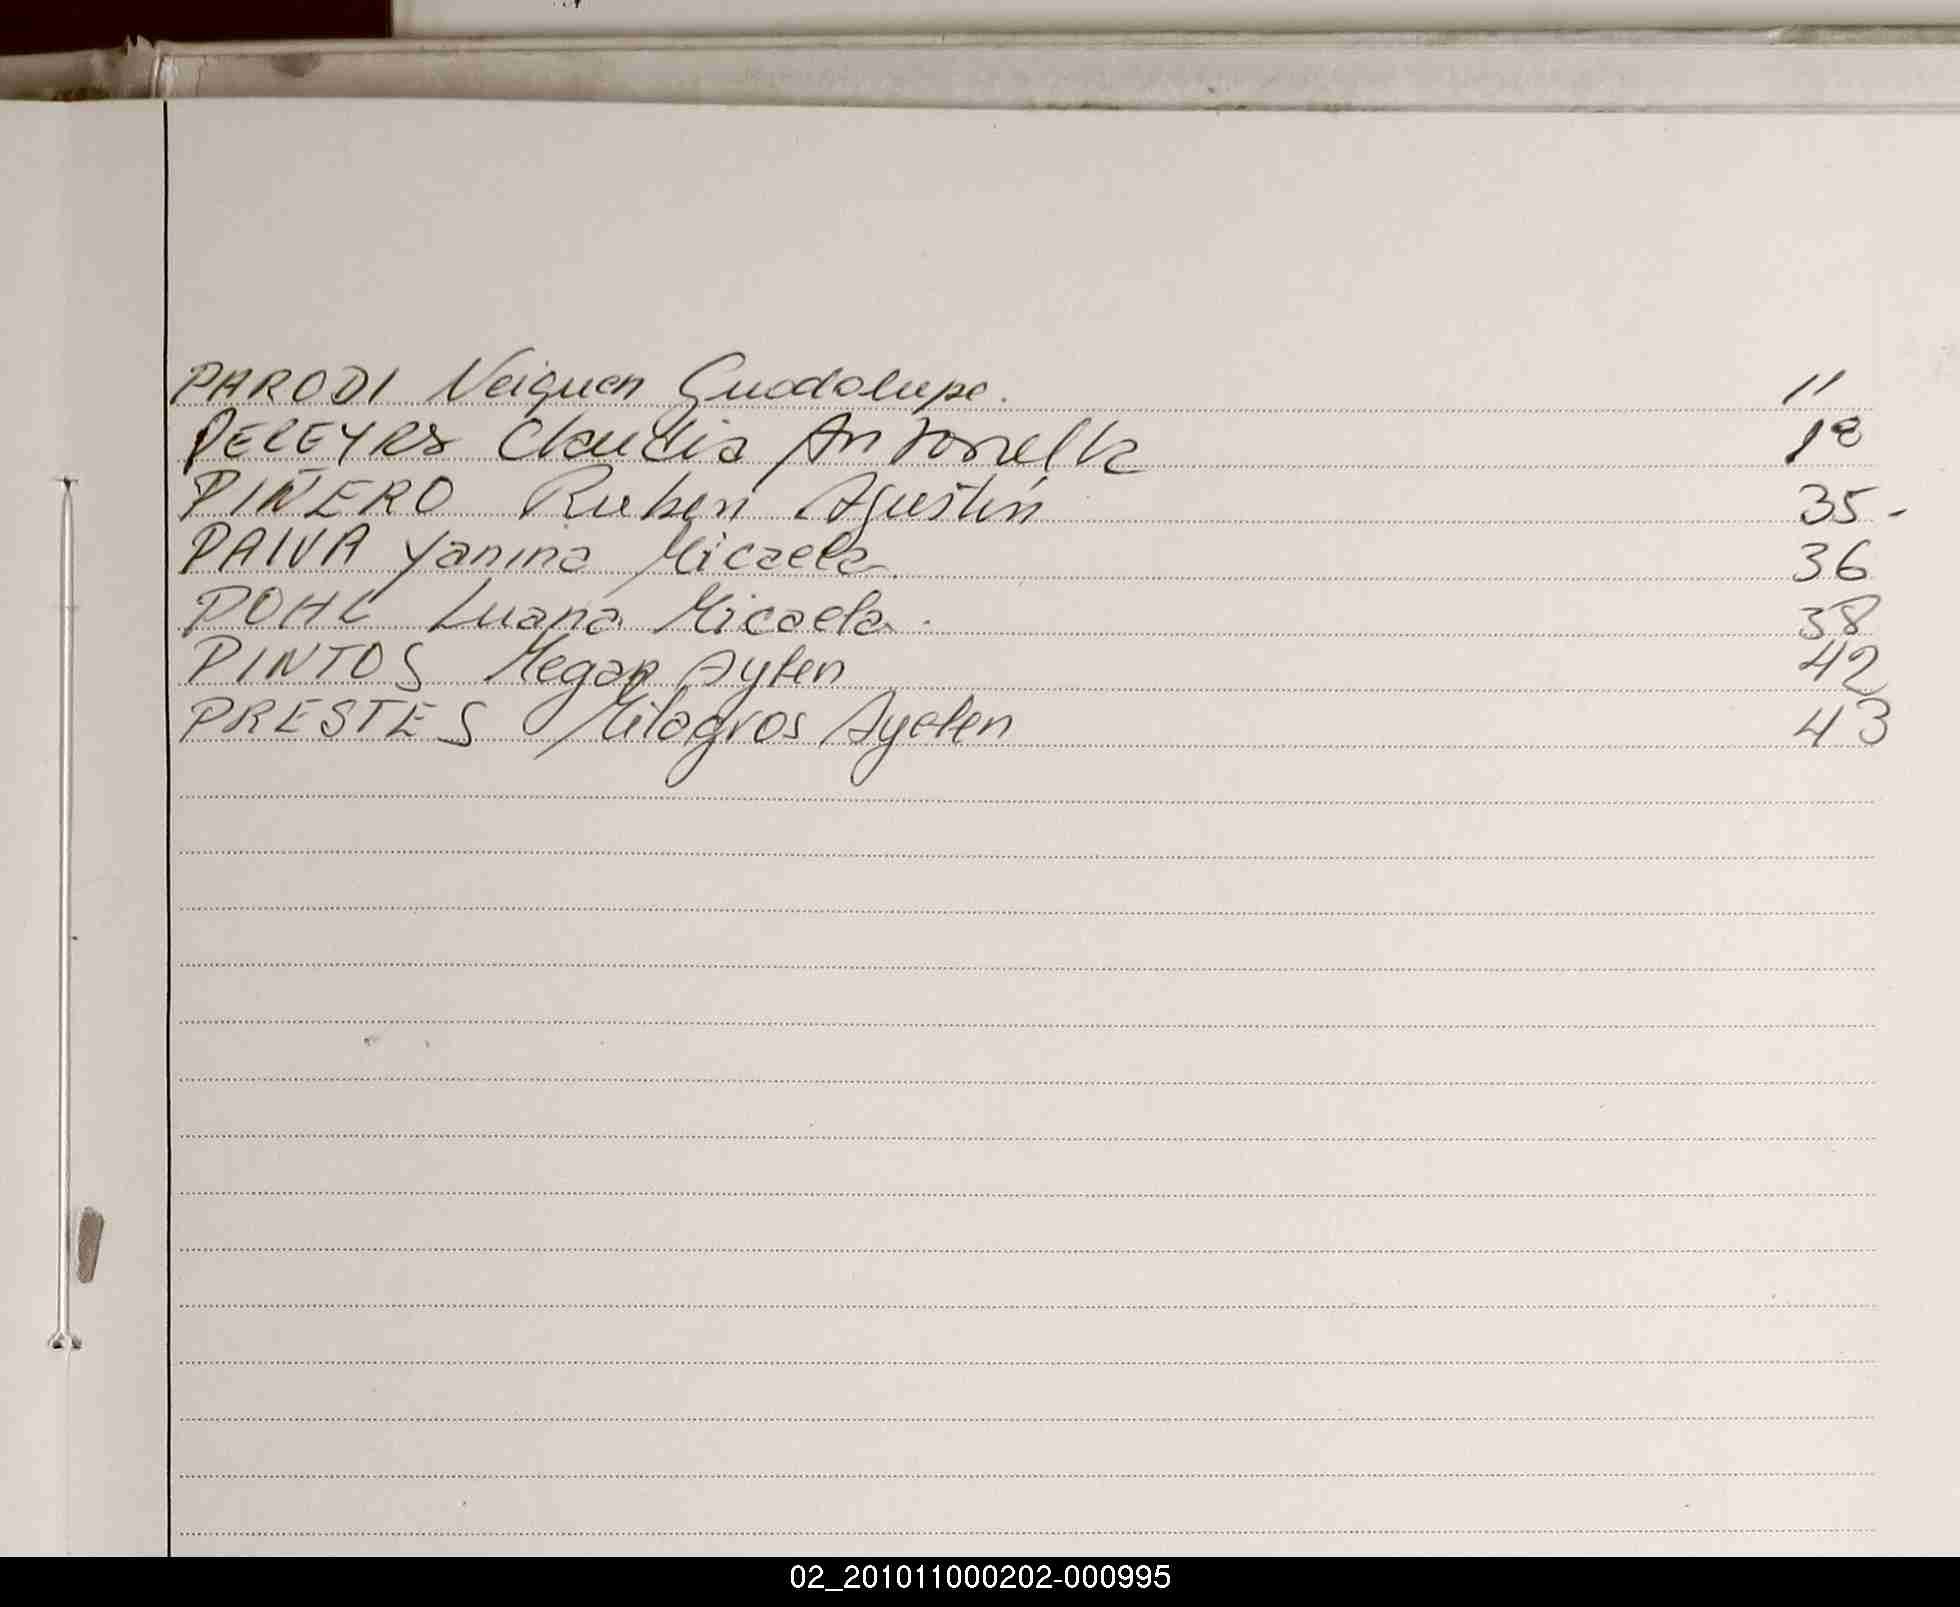 PARODI Neiquen Guadalupe. 11
PEREYRA Claudia Antonella 18
PIÑERO Ruben Agustín 35-
PAIVA Yanina Micaela 36
POHL Luana Micaela. 38
PINTOS Megan Aylen 42
PRESTES Milagros Ayelen 43
02_201011000202-000995